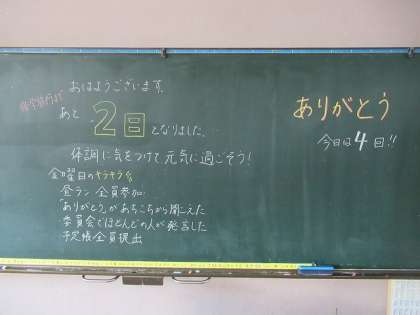 おはようございます。
修学旅行まで
あと 2日 となりました。
体調に気をつけて 元気に過ごそう!
金曜日のキラキラ
昼ラン 全員参加
「ありがとう」があちこちから聞こえた
委員会でほとんどの人が発言した
予定帳全員提出
ありがとう
今日は4回!!